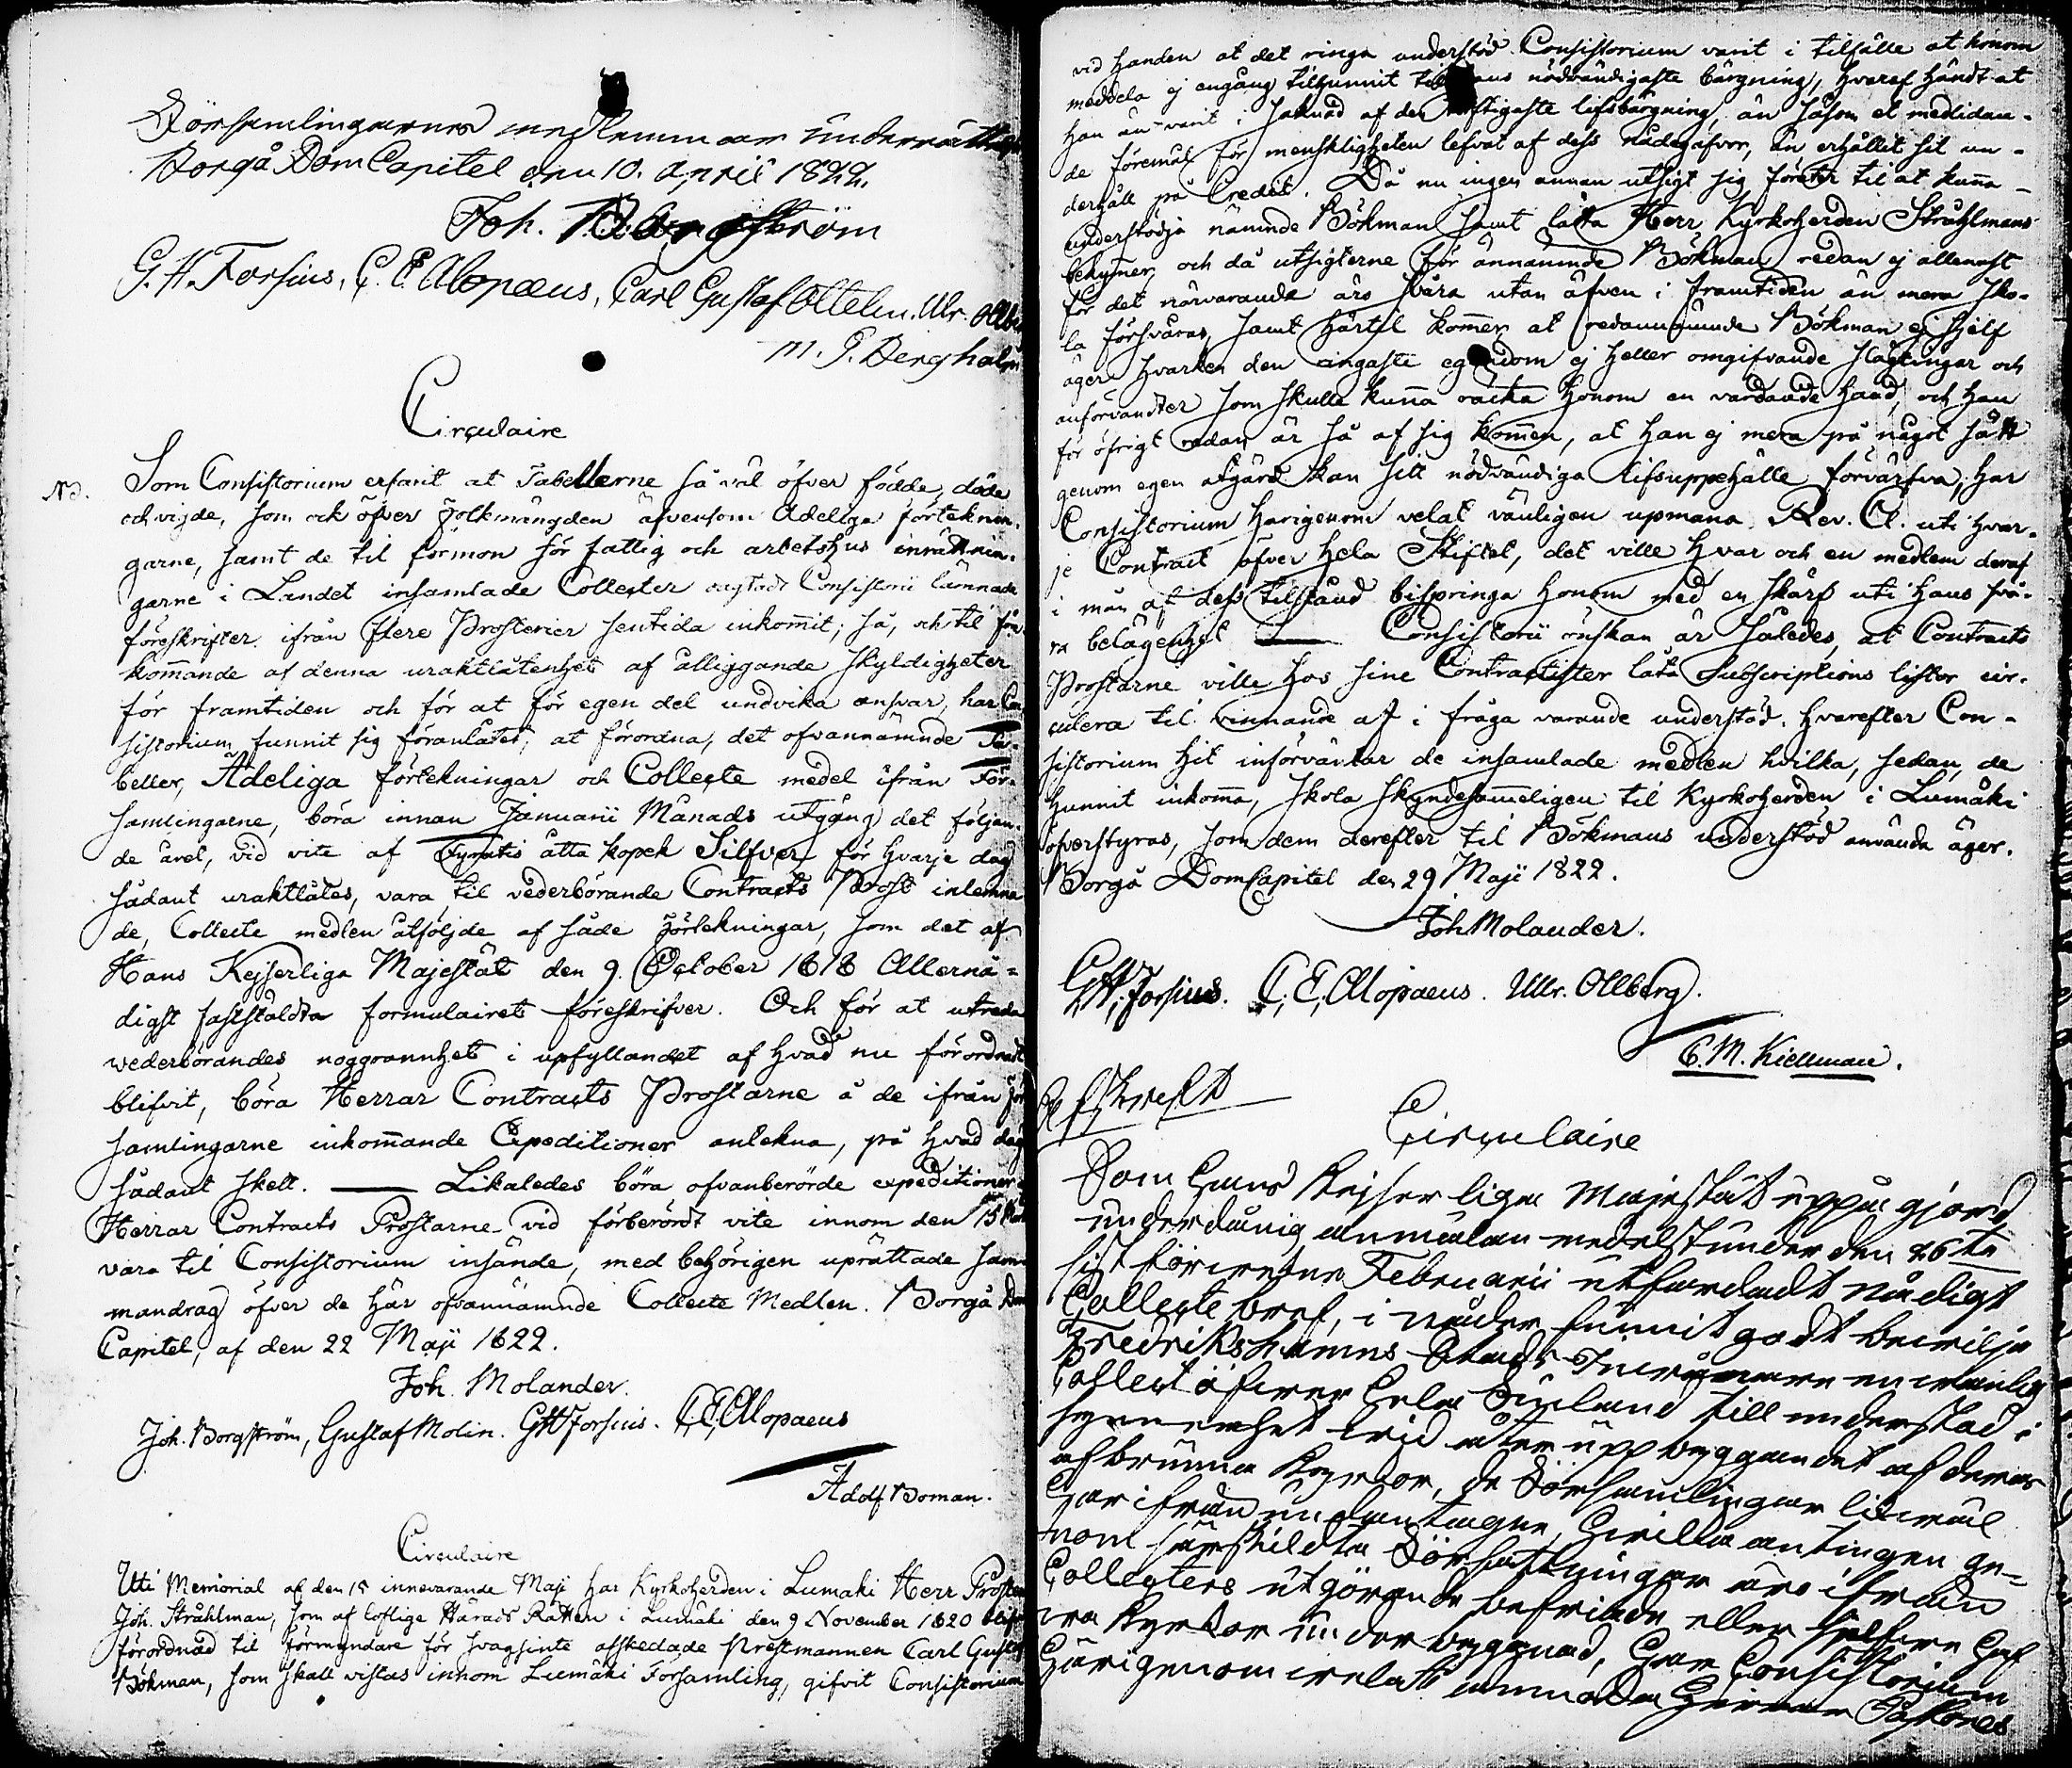 Församlingarnes medlemmar underrätta
Borgå DomCapitel den 10. April 1822.
Joh. Borgström
G. H. Forsius, C. E. Alopæus, Carl Gustaf Ottelin. Ulr.
M. G. Bergholm
Circulaire
Nd. Som Consistorium erfarit at Tabellerne så väl öfver födde, döde
och vigde, som ock öfver Folkmängden äfvensom Adeliga förteknin-
garne, samt de til förmon för fattig och arbetshus inrättnin-
garne i Landet insamlade Collecter oagtadt Consistorii lämnade
föreskrifter ifrån flere Prosterier sentida inkommit; så, och til före-
kommande af denna uraktlåtenhet af åliggande skyldigheter
för framtiden och för at för egen del undvika ansvar, har Con
sistorium funnit sig föranlåtet, at förordna, det ofvannämnde Ta-
beller, Adeliga förtekningar och Collecte medel ifrån För-
samlingarne, böra innan Januarii Månads utgång det följan-
de året, vid vite af Fyratio åtta kopek Silfver för hvarje dag
sådant uraktlåtes, vara til vederbörande Contracts Prost inlemna
de, Collecte medlen åtföljde af såde Förtekningar, som det af
Hans Kejserliga Majestät den 9. October 1818 Allernå-
digst faststäldta formulairet föreskrifver. Och för at utreda
wederbörandes noggrannhet i upfyllandet af hvad nu förordnadt
blifvit, böra Herrar Contracts Prostarne å de ifrån För
samlingarne inkommande Expeditioner antekna, på hvad dag
sådant skett. — Likaledes böra ofvanberörde expeditioner
Herrar Contracts Prostarne vid förberördt vite innom den 15
vara til Consistorium insände, med behörigen uprättade sam-
mandrag öfver de här ofvannämnde Collecte Medlen. Borgå Dom
Capitel, af den 22 Maji 1822.
Joh. Molander.
Joh. Borgström, Gustaf Molin. GH Forsius. C. E. Alopaeus
Adolf Boman.
Circulaire
Uti Memorial af den 15 innevarande Maji har Kyrkoherden i Lumäki Herr Prosten
Joh. Stråhlman, som af loflige Härads Rätten i Lumäki den 9 November 1820 blifvit
förordnad til förmyndare för svagsinte afskedade Prestmannen Carl Gustaf
Bökman, som skall vistas innom Lumäki Församling, gifvit Consistorium
vid handen at det ringa understöd Consistorium varit i tilfälle at honom
meddela ej engång tilhunnit til hans nödvändigaste bärgning, hvaraf händt at
han än varit i saknad af den torftigaste lifsbärgning, än såsom et medlidan-
de föremål för menskligheten lefvat af dess nådegåfvor, än erhållit sit un-
derhåll på Credit. Då nu ingen annan utsigt sig företer til at kunna
understödja nämnde Bökman samt lätta Herr Kyrkoherden Stråhlmans
bekymer, och då utsigterne för ännämnde Bökman redan ej allenast
för det närvarande äro svåra utan äfven i framtiden än mera sko-
la försvåras, samt härtil kommer at redannämnde Bökman ej sjelf
äger hvarken den ringaste egendom ej heller omgifvande slägtingar och
anförvandter som skulle kunna räcka honom en vårdande hand, och han
för öfrigt redan är så af sig kommen, at han ej mera på något sätt
genom egen åtgärd kan sitt nödvändiga lifsuppehälle förvärfva; har
Consistorium härigenom velat vänligen upmana Rev. Cl. uti hvar-
je Contract öfver hela Stiftet, det ville hvar och en medlem deraf
i mån af dess tilstånd bispringa honom med en skärf uti hans svå-
ra belägenhet — Consistorii önskan är således, at Contracts
Prostarne ville hos sine Contractister låta Subscriptions listor cir-
culera til vinnande af i fråga varande understöd, hvarefter Con-
sistorium hit införväntar de insamlade medlen hvilka, sedan de
hunnit inkomma, skola skyndesammeligen til Kyrkoherden i Lumäki
öfverstyras, som dem derefter til Bökmans understöd använda äger.
Borgå DomCapitel den 29 Maji 1822.
Joh Molander.
GH. Forsius. C. E. Alopaeus. Ulr. Ollberg.
C. M. Kiellman.
Circulaire
Som Hans Kejserliga Majestät uppå gjord
underdånig anmälan medelst under den 26te
sistförvekne Februarii utfärdadt nådigt
Collecte bref, i nåder funnit godt bevilja
Fredrikshamns Stads Invånare en vanlig
Collect öfver hela Finland till understöd i
synnerhet vid återuppbyggandet af deras
afbrunna Kyrkor, de Församlingar likväl
härifrån undantagne, hvilka antingen ge-
nom särskildta Författningar äro ifrån
Collecters utgörande befriade eller sjelfve haf
va Kyrkor under byggnad, har Consistorium
härigenom velat anmoda Herrar Pastores